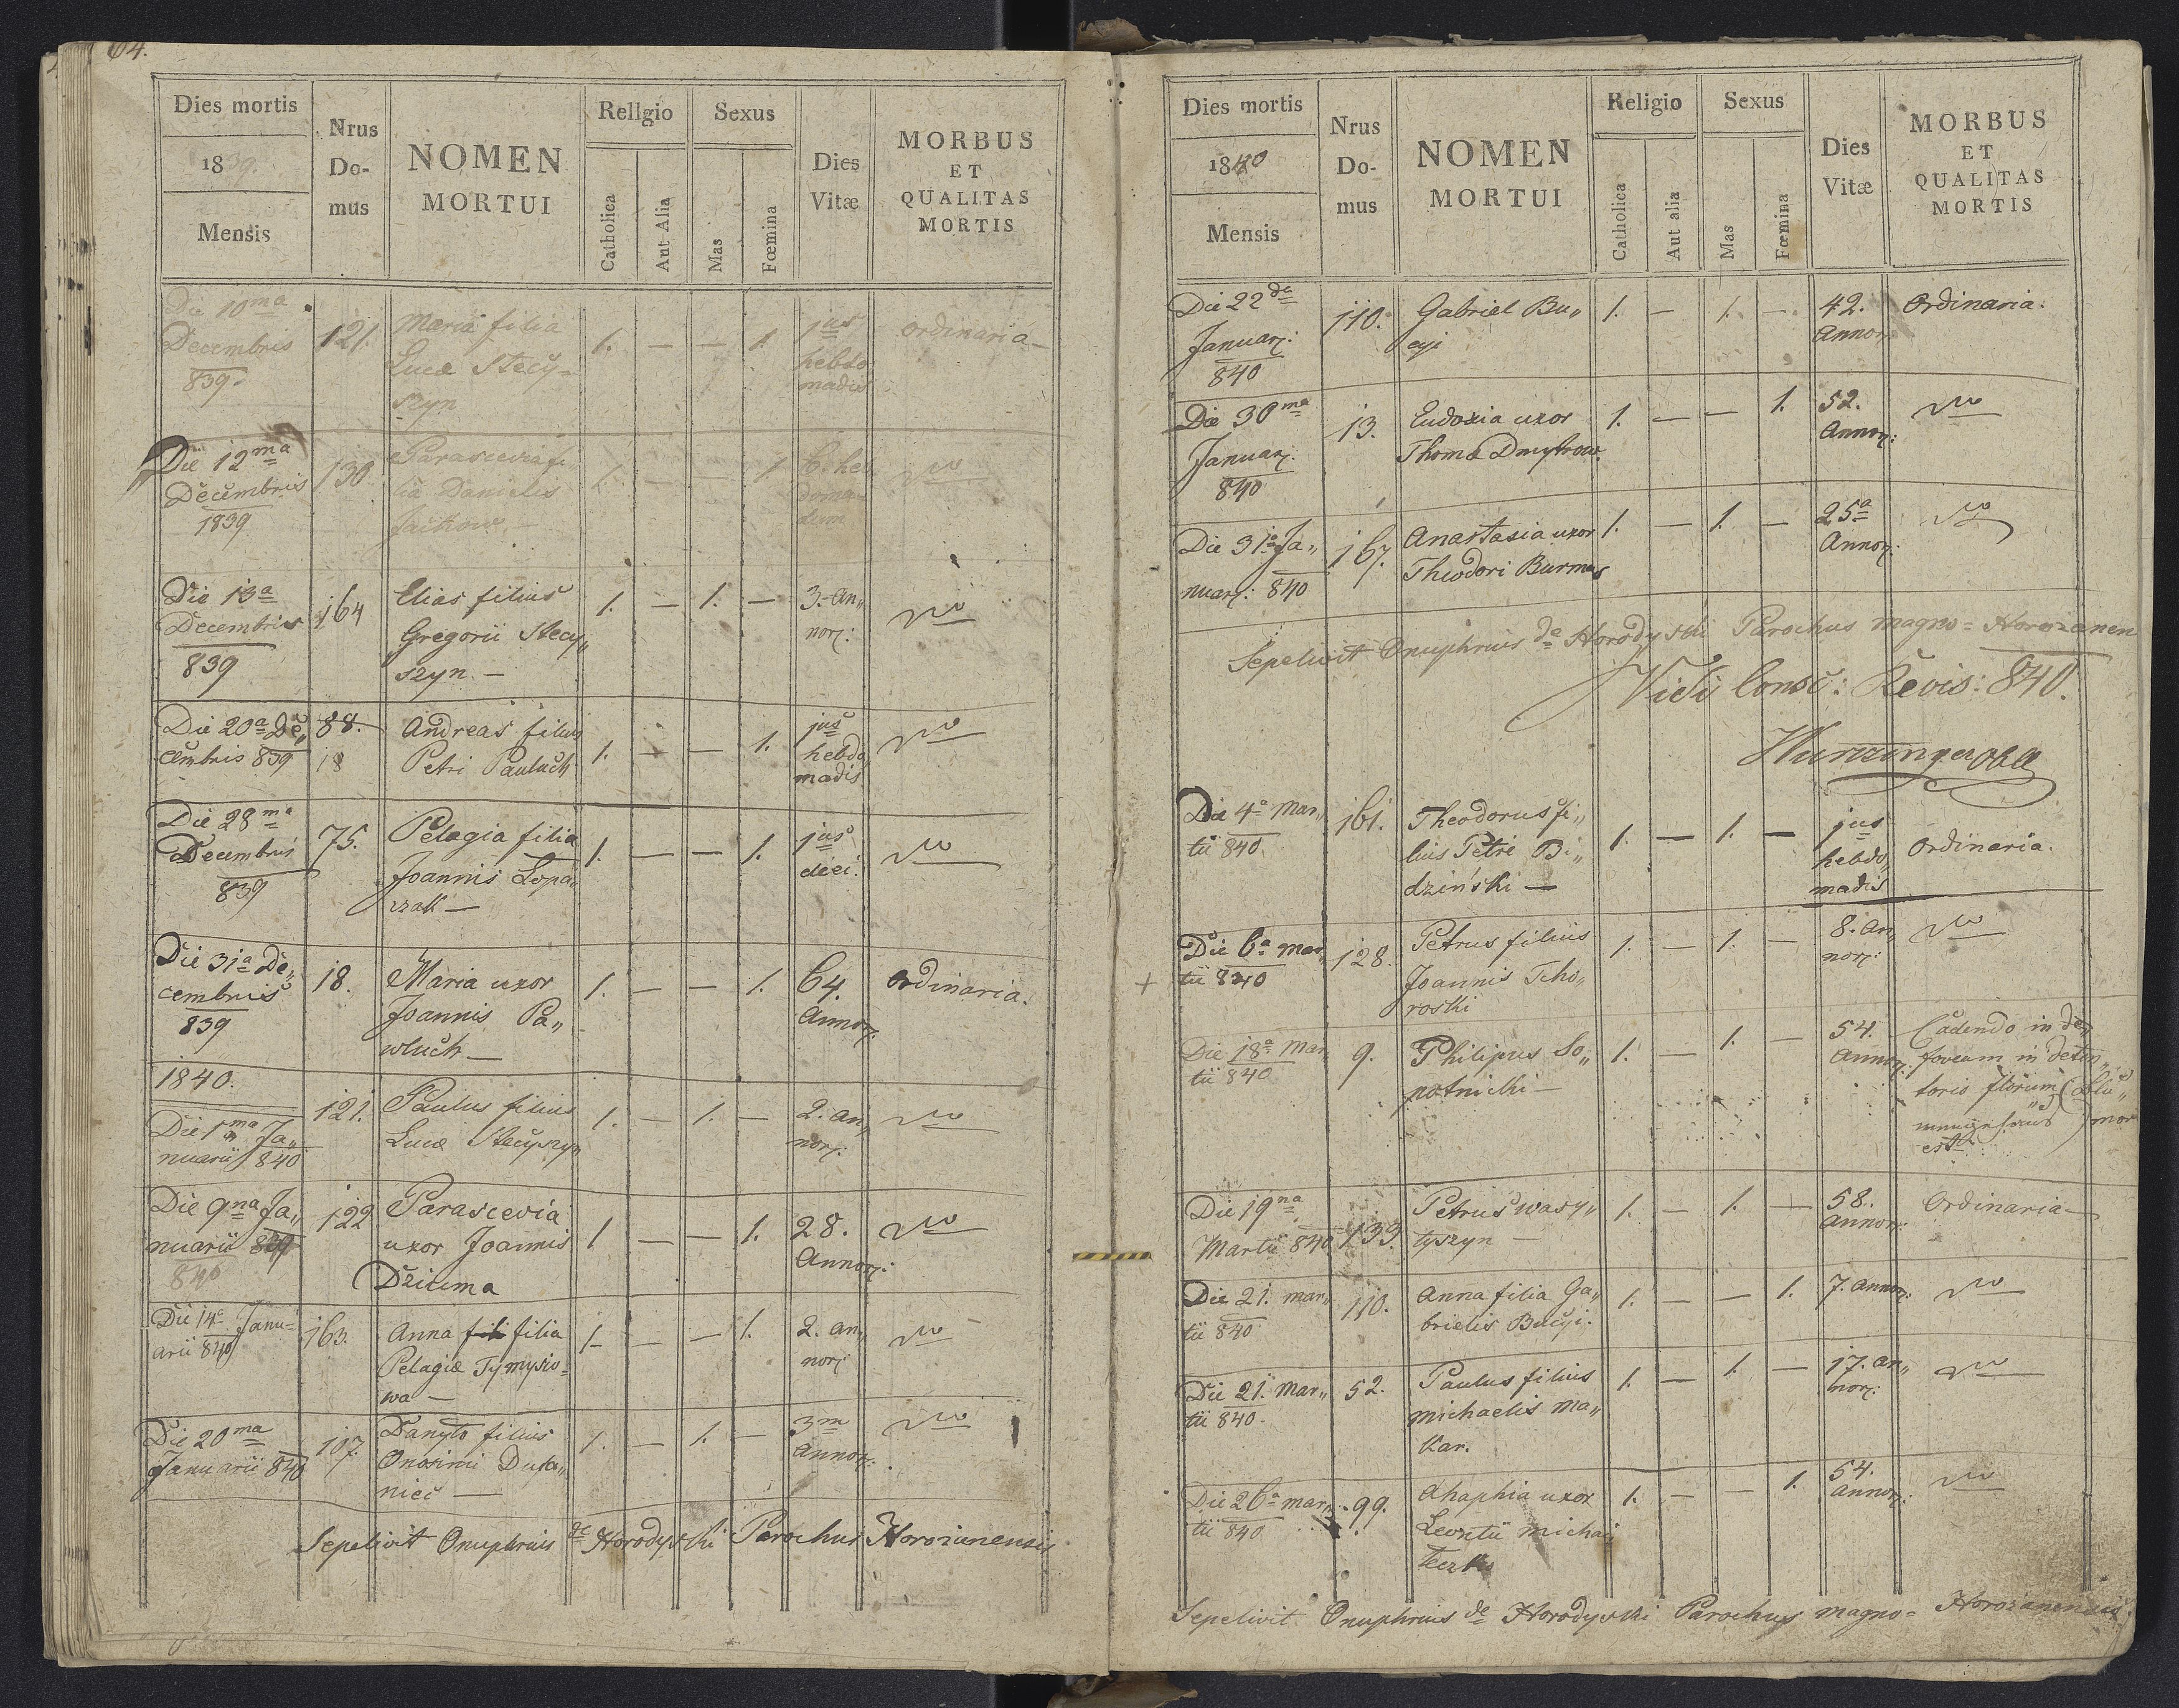 64.
Dies mortis
1839.
Mensis
Nrus
Do-
mus
NOMEN
MORTUI
Religio
Catholica
Aut Alia
Sexus
Mas
Fœmina
Dies
Vitæ
MORBUS
ET
QUALITAS
MORTIS
Die 10ma
Decembris
839.
121.
Maria filia
Lucæ Stecy-
szyn
1. — — 1.
1us
hebdo
madis
ordinaria —
Die 12ma
Decembris
1839
130
Parascevia fi
lia Danielis
Jackow —
1. — — 1
6. heb
doma
dum
Die 13a
Decembris
839
164
Elias filius
Gregorii Stecy„
szyn. —
1. — 1. —
3. an„
nor:
Die 20a De„
cembris 839
88.
18
Andreas filius
Petri Pauluch
1. — — 1.
1us
hebdo
madis
Die 28ma
Decembris
839
75.
Pelagia filia
Joannis Lopa„
czak —
1. — — 1.
1us
diei.
Die 31a De„
cembris
839
18.
Maria uxor
Joannis Pa„
wluch —
1. — — 1.
64.
Annor:
Ordinaria.
1840.
Die 1ma Ja„
nuarii 840
121.
Paulus filius
Lucæ Stecyszyn
1. — 1. —
2. an„
nor:
Die 9na Ja„
nuarii 839
840
122
Parascevia
uxor Joannis
Dziuma
1 — — 1.
28.
Annor:
Die 14a Janu-
arii 840
163.
Anna fili filia
Pelagiæ Tymysio-
wa —
1 — — 1.
2. an„
nor:
Die 20ma
Januarii 840
107.
Danylo filius
Onosimi Duka„
niec —
1. — 1. —
3m
Annor:
Sepelivit Onuphrius de Horodyski Parochus Horozanensis
Dies mortis
1840
Mensis
Nrus
Do-
mus
NOMEN
MORTUI
Religio
Catholica
Aut alia
Sexus
Mas
Fœmina
Dies
Vitæ
MORBUS
ET
QUALITAS
MORTIS
Die 22da
Januar:
840
110.
Gabriel Bu„
cyi
1. — 1. —
42.
Annor:
Ordinaria.
Die 30ma
Januar:
840
13.
Eudoxia uxor
Thomæ Dmytrow.
1. — — 1.
52.
Annor:
Die 31a Ja„
nuar: 840
167.
Anastasia uxor
Theodori Burmas
1. — 1. —
25a
Annor:
Sepelivit Onuphrius de Horodyski Parochus magno = Horozanen
Vidi Consc: Revis: 840.
Die 4a Mar„
tii 840.
161.
Theodorus fi„
lius Petri Bi„
dziński —
1. — 1. —
1us
hebdo„
madis
Ordinaria.
+
Die 6a mar„
tii 840
128.
Petrus filius
Joannis Tcho„
roski
1. — 1. —
8. an„
nor:
Die 18a Mar
tii 840
9.
Philipus So„
potnicki —
1. — 1. —
54.
Annor:
Cadendo in
foveam in
est
Die 19na
Martii 840
133.
Petrus wasy„
lyszyn —
1. — 1. —
58.
Annor:
Ordinaria —
Die 21. mar„
tii 840
110.
Anna filia Ga„
brielis Bucyi.
1. — — 1.
7. annor:
Die 21. Mar„
tii 840.
52.
Paulus filius
michaelis Ma„
kar.
1. — 1. —
17. an„
nor:
Die 26a mar„
tii 840
99.
Ahaphia uxor
Leontii michaj
leczko
1. — — 1.
54.
annor:
Sepelivit Onuphrius de Horodyski Parochus magno = Horozanensis.